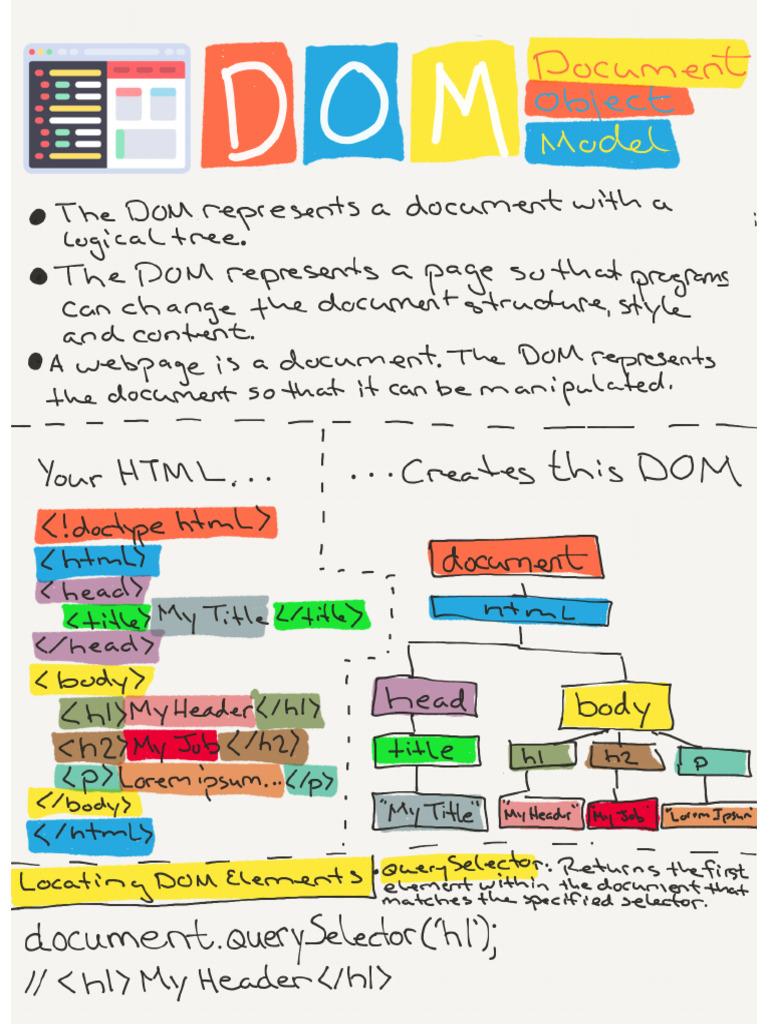 DOM
Document
Object
Model
● The DOM represents a document with a
logical tree.
● The DOM represents a page so that programs
can change the document structure, style
and content.
● A webpage is a document. The DOM represents
the document so that it can be manipulated.
Your HTML...
...Creates this DOM
<!doctype html>
<html>
<head>
<title> My Title </title>
</head>
<body>
<h1> My Header </h1>
<h2> My Job </h2>
<p> Lorem ipsum... </p>
</body>
</html>
document
html
head body
title h1 h2 p
"My Title" "My Header" "My Job" "Lorem Ipsum"
Locating DOM Elements
• querySelector: Returns the first
element within the document that
matches the specified selector.
document.querySelector('h1');
// <h1> My Header </h1>